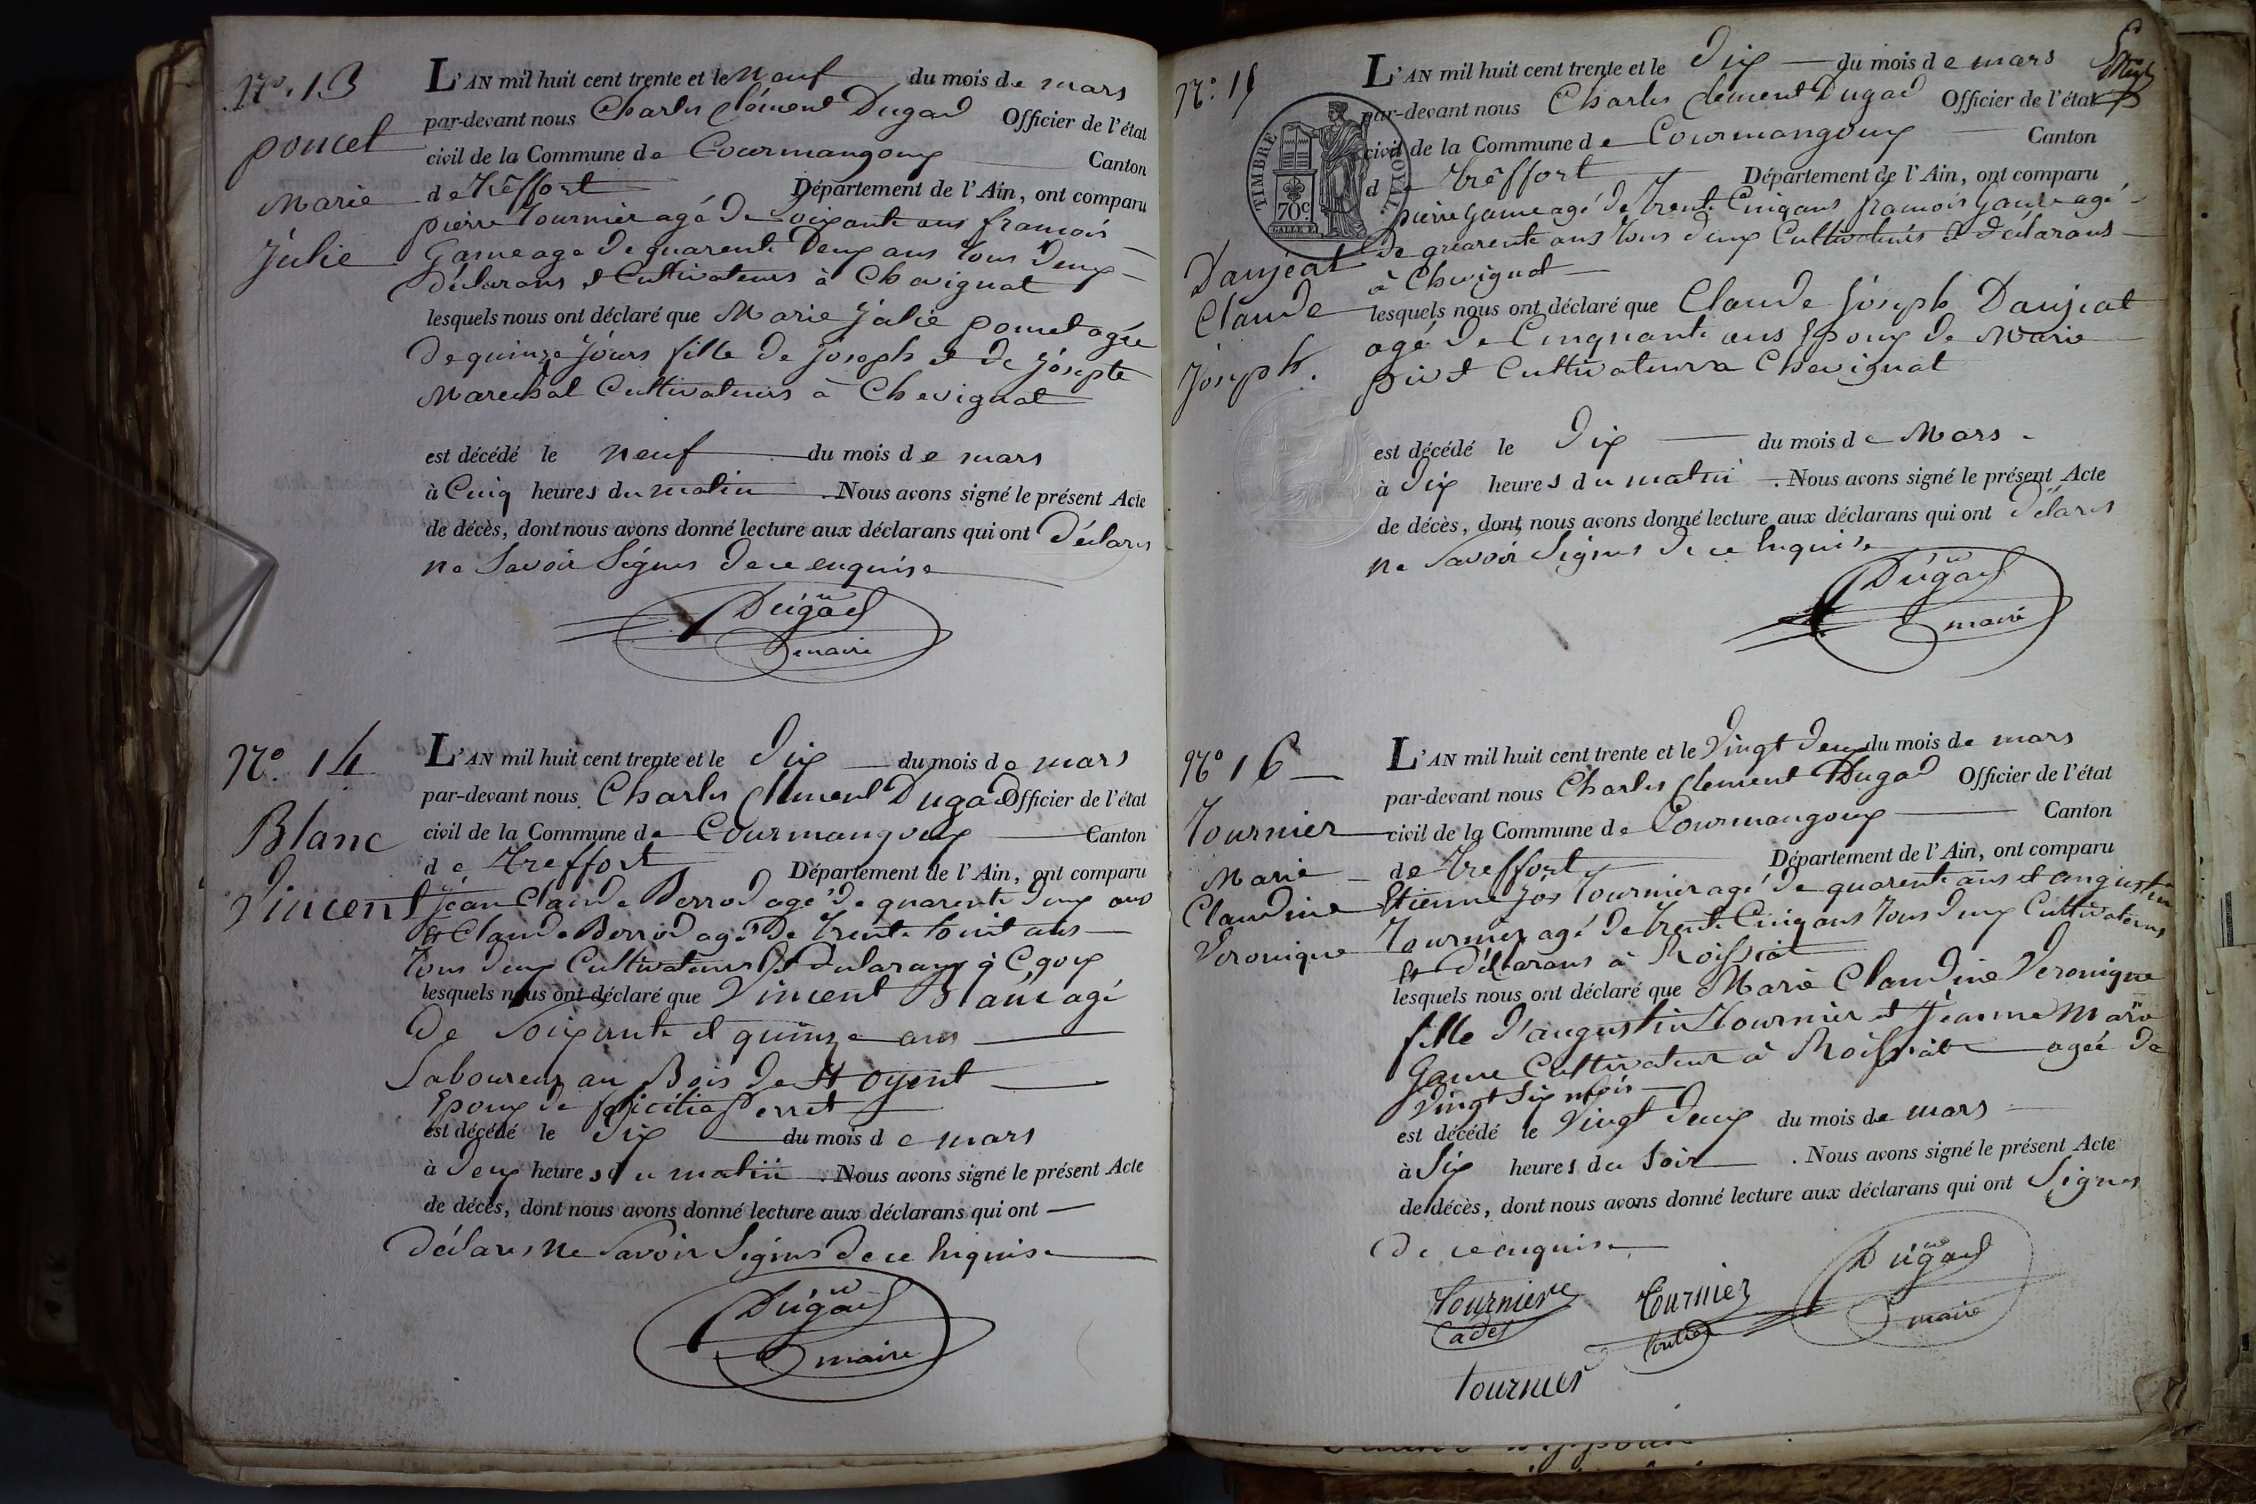 N.o 13
poncet
Marie
Julie
L'AN mil huit cent trente et le neuf du mois de mars
par-devant nous Charles Clément Dugad Officier de l'état
civil de la Commune de Courmangoux Canton
de Tréffort Département de l'Ain, ont comparu
pierre Tournier agé de Soixante ans francois
Game age de quarente Deux ans tous deux
Déclarans et Cultivateurs à Chevignat
lesquels nous ont déclaré que Marie Julie poncet agée
De quinze jours fille de joseph et de josepte
Marechal Cultivateurs à Chevignat
est décédé le neuf du mois de mars
à Cinq heures du matin . Nous avons signé le présent Acte
de décès, dont nous avons donné lecture aux déclarans qui ont Déclares
ne Savoir Signer de ce enquise
Dugad
maire
N.o 14
Blanc
Vincent
L'AN mil huit cent trente et le Dix du mois de mars
par-devant nous Charles Clement Dugad Officier de l'état
civil de la Commune de Courmangoux Canton
de Treffort Département de l'Ain, ont comparu
jean Claude Berrod agé de quarente deux ans
et Claude Berrod agé De trente huit ans
tous deux Cultivateurs et declarans à Cgoux
lesquels nous ont déclaré que Vincent Blanc agé
De Soixante et quinze ans
Laboureur au Bois de St oyent
Epoux de felicitie Perret
est décédé le Dix du mois de mars
à Deux heures du matin . Nous avons signé le présent Acte
de décès, dont nous avons donné lecture aux déclarans qui ont
Déclares ne Savoir Signer de ce hiquise
Dugad
maire
N.o 15
Daujeat
Claude
Joseph.
TIMBRE ROYAL.
70c
L'AN mil huit cent trente et le Dix du mois de mars
par-devant nous Charles Clement Dugad Officier de l'état
civil de la Commune de Courmangoux Canton
de Tréffort Département de l'Ain, ont comparu
pierre Game agé de trente Cinq ans francois Game agé
De quarente ans tous deux Cultivateurs et declarans
à Chevignat
lesquels nous ont déclaré que Claude Joseph Daujeat
agé de Cinquante ans Epoux de Marie
Cultivateur a Chevignat
est décédé le Dix du mois de Mars
à Dix heures du matin . Nous avons signé le présent Acte
de décès, dont nous avons donné lecture aux déclarans qui ont Déclares
ne Savoir Signer de ce hiquise
Dugad
maire
No 16
Tournier
Marie
Claudine
Veronique
L'AN mil huit cent trente et le Vingt deux du mois de mars
par-devant nous Charles Clement Dugad Officier de l'état
civil de la Commune de Courmangoux Canton
de Treffort Département de l'Ain, ont comparu
Etienne jos Tournier agé de quarente ans et augustin
Tournier agé de trente Cinq ans tous deux Cultivateurs
et Déclarans à Roissiat
lesquels nous ont déclaré que Marie Claudine Veronique
fille d'augustin Tournier et jeanne Marie
Game Cultivateur à Roissiat agée de
Vingt Six mois
est décédé le Vingt Deux du mois de mars
à Six heures du Soir . Nous avons signé le présent Acte
de décès, dont nous avons donné lecture aux déclarans qui ont Signer
de ce enquise
Tournier
Cadet
Tournier
Dugad
maire
tournier